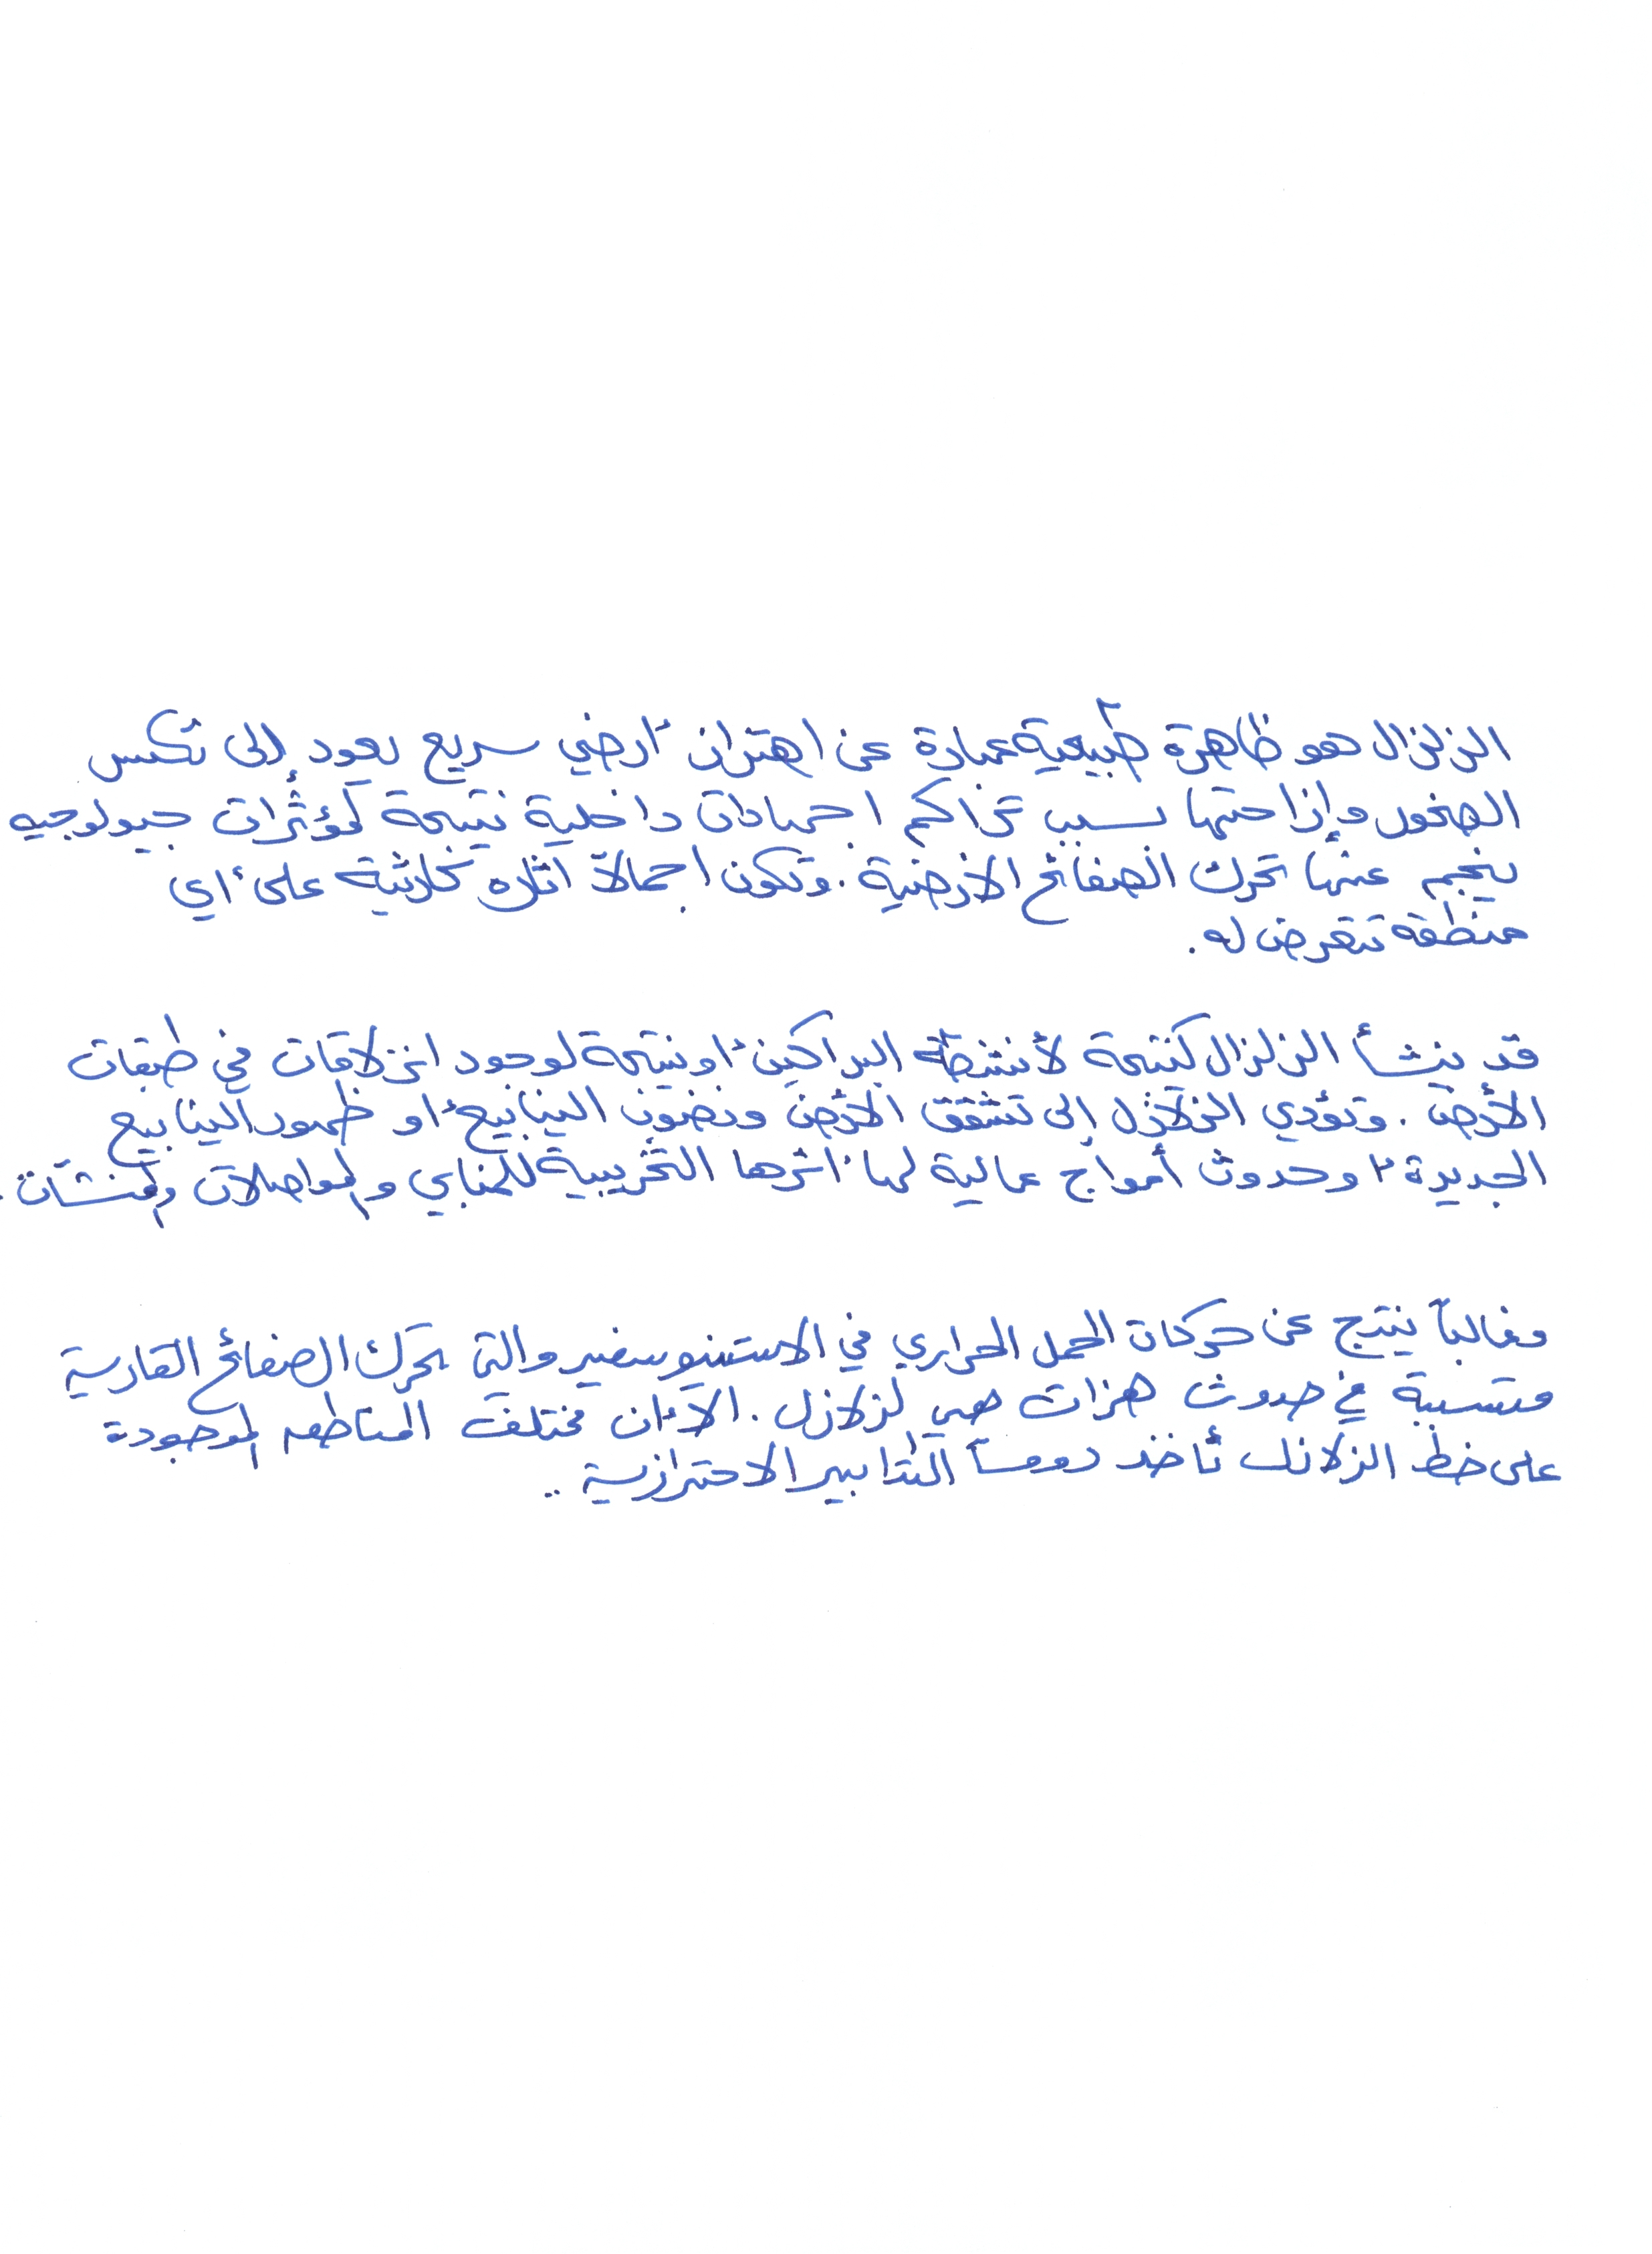 الزلزال هو ظاهرة طبيعية عبارة عن اهتزاز أرضي سريع يعود إلى تكسر
الصخور وإزاحتها بسبب تراكم اجهادات داخلية نتيجة لمؤثرات جيولوجيه
ينجم عنها تحرك الصفائح الارضية. وتكون اجمالا اثاره كارثية على أي
منطقة تتعرض له.
قد ينشأ الزلزال كنتيجة لأنشطة البراكين أو نتيجة لوجود انزلاقات في طبقات
الأرض. وتؤدي الزلازل إلى تشقق الأرض ونضوب الينابيع أو ظهور الينابيع
الجديدة أو حدوث أمواج عالية لها اثرها التخريبية للمباني والمواصلات والمنشآت.
وغالباً ينتج عن حركات الحمل الحراري في الاستينوسفير والتي تحرك الصفائح القارية
متسببة في حدوث هزات هي الزلازل. الا أن مختلف المناطق الموجودة
على خط الزلازل تأخذ دوماً التدابير الاحترازية..